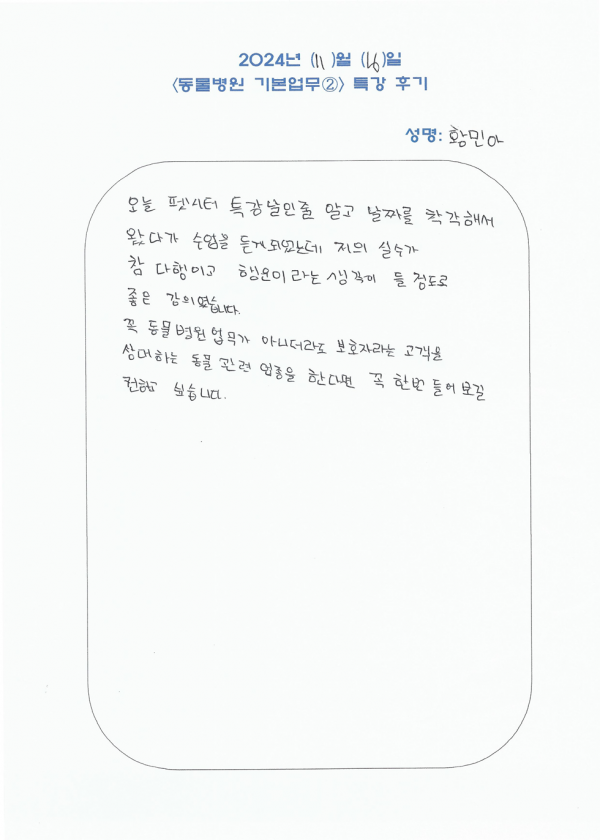 2024년 (11)월 (16)일
<동물병원 기본업무②> 특강 후기
성명: 황민아
오늘 펫시터 특강날인줄 알고 날짜를 착각해서
왔다가 수업을 듣게되었는데 저의 실수가
참 다행이고 행운이라는 생각이 들 정도로
좋은 강의였습니다.
꼭 동물병원업무가 아니더라도 보호자라는 고객을
상대하는 동물 관련 업종을 한다면 꼭 한번 들어보길
권하고 싶습니다.